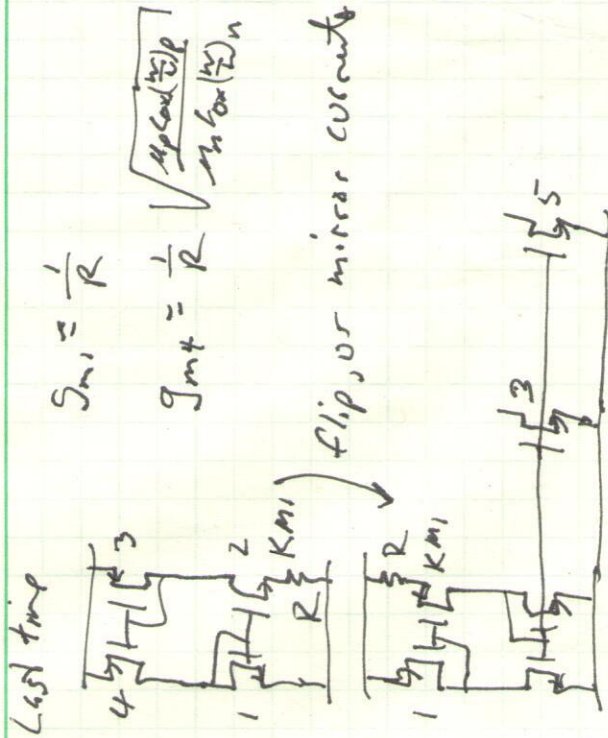 Last time
4
3
1
2
KM1
R
gm1 = 1/R
gm4 = 1/R √(μpCox(W/L)p / μnCox(W/L)n)
flip, or mirror currents
R
1
KM1
3
5